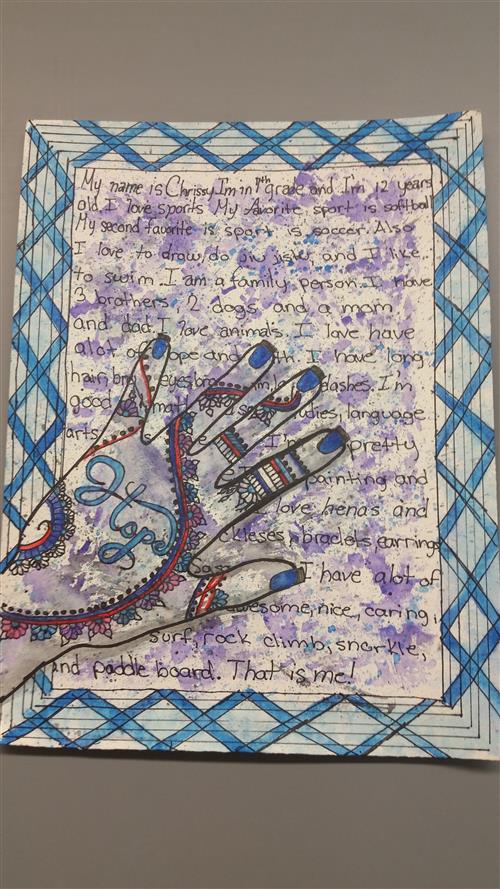 My name is Chrissy, I'm in 7th grade and I'm 12 years
old. I love sports My favorite sport is softball
My second favorite is sport is soccer. Also
I love to draw, do jiu jistu, and I like
to swim. I am a family person. I have
3 brothers 2 dogs, and a mom
and dad. I love animals. I love have
alot of hope and I have long
hair, eyes, lashes. I'm
good math, language
arts. I'm pretty
painting and
love henas and
braclets, earrings
I have alot of
awesome, nice, caring,
surf, rock climb, snorkle,
and paddle board. That is me!
Hope